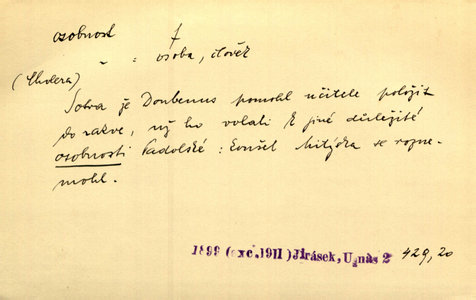 osobnost f
„ = osoba, člověk
(Cholera)
Sotva je Doubenus pomohl učitele položit
do rakve, už ho volali k jiné důležité
osobnosti Padolské: Konšel Mitiska se roznemohl.
1899 (exc. 1911) Jirásek, U nás 2 429, 20